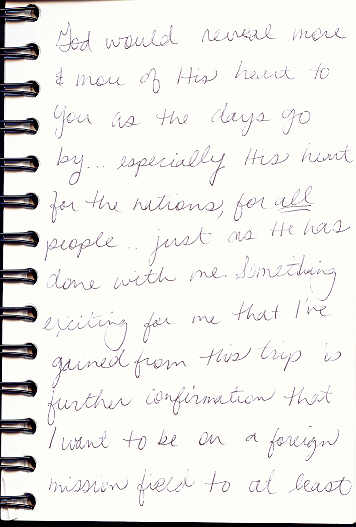 God would reveal more
& more of His heart to
you as the days go
by... especially His heart
for the nations, for all
people.. just as He has
done with me. Something
exciting for me that I've
gained from this trip is
further confirmation that
I want to be on a foreign
mission field to at least